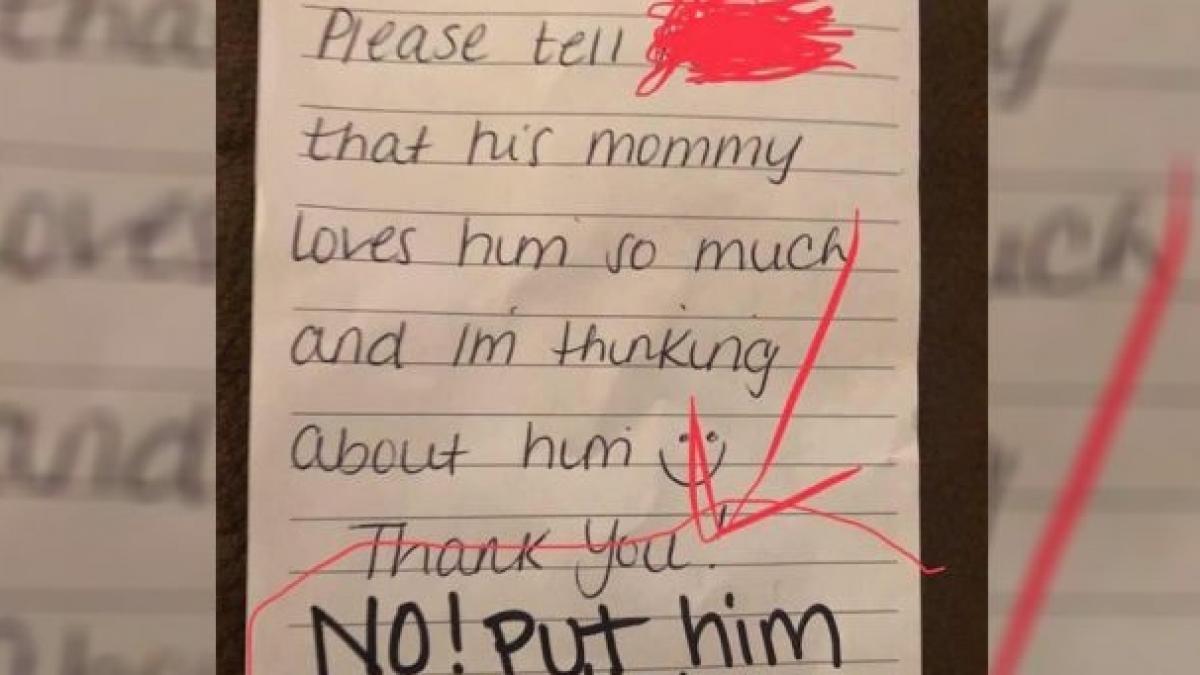 Please tell
that his mommy
loves him so much
and I'm thinking
about him
Thank You!
NO! Put him